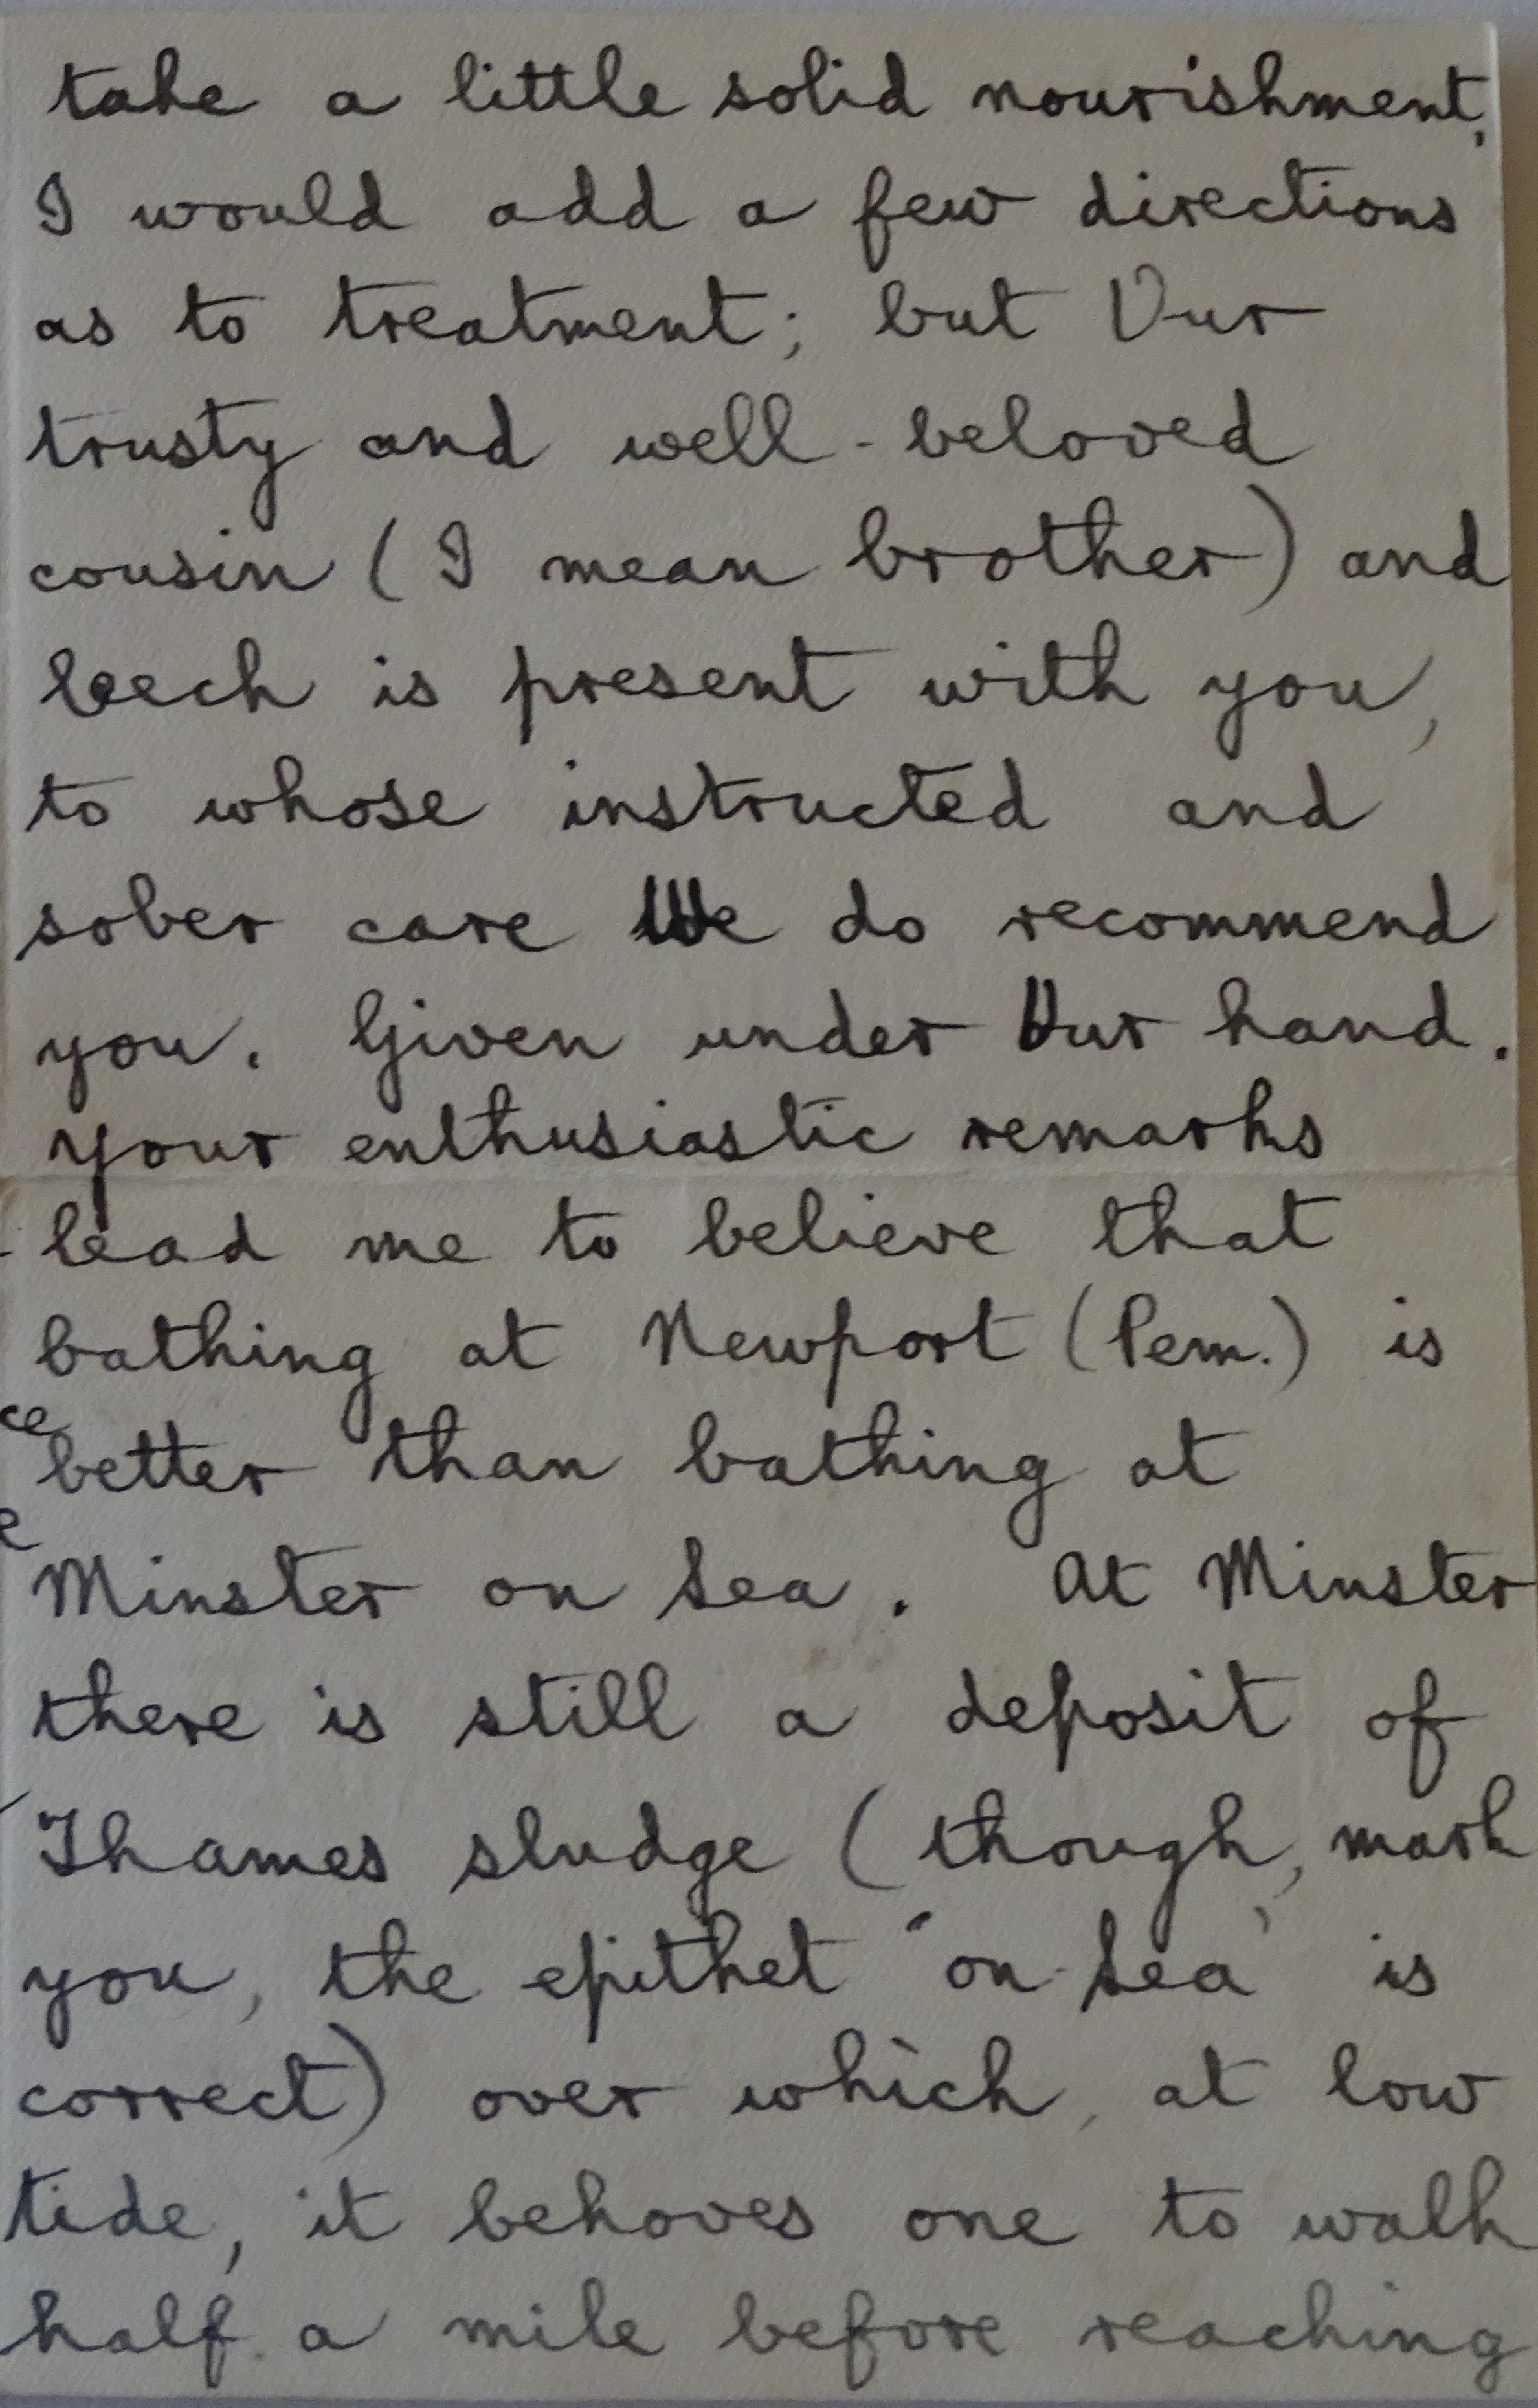 take a little solid nourishment,
I would add a few directions
as to treatment; but Our
trusty and well-beloved
cousin (I mean brother) and
leech is present with you,
to whose instructed and
sober care We do recommend
you. Given under Our hand.
Your enthusiastic remarks
lead me to believe that
bathing at Newport (Pem.) is
better than bathing at
Minster on Sea. At Minster
there is still a deposit of
Thames sludge (though, mark
you, the epithet 'on-Sea' is
correct) over which, at low
tide, it behoves one to walk
half a mile before reaching